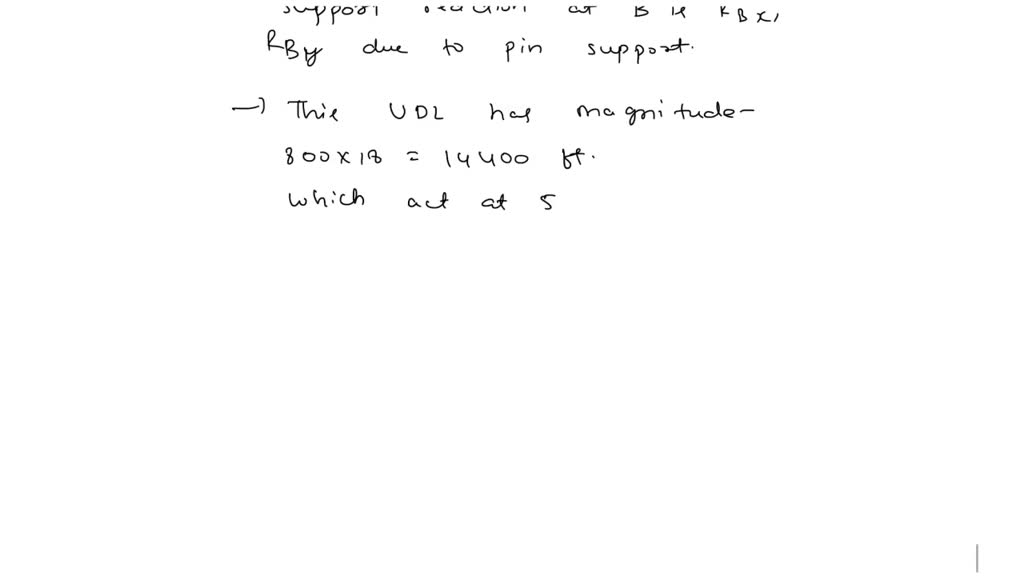 support reaction at B is RBx,
RBy due to pin support.
→ This UDL has magnitude-
800x18 = 14400 ft.
which act at 5